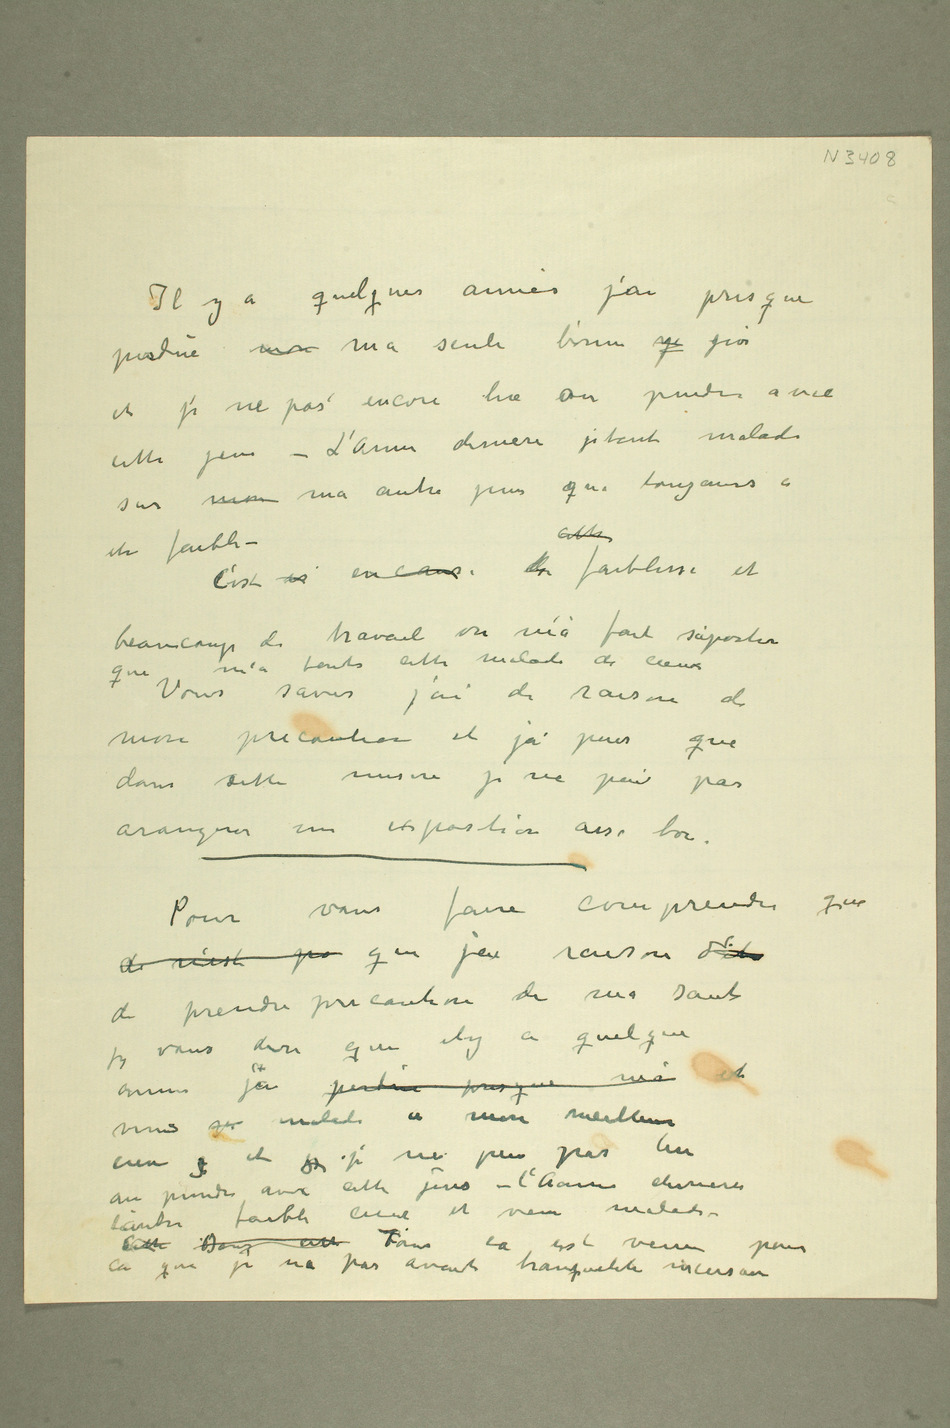 N 3408
Il y a quelques années j'ai presque
perdue mon ma seule bonne ye
et je ne pas encore lire ou pindre avec
cette jeux – L'Anne dernere jetant malade
sur mon ma autre jeux que toujours a
ete faible –
cette
C'est encause de faiblesse et
beaucoup de travail on m'a fait suporter
que m'a tante cette malade de
Vous saves j'ai de raison de
mon precaution et j'a peur que
dans cette misere je ne peu pas
aranger une exposition asse bon.
Pour vous faire comprendre que
de n'est pa que j'ai raison
de prendre precaution de ma sante
je vous dire que ily a quelque
annes j'ai perdue presque ma et
malade a mon meilleur
et je ne peu pas lire
au pindre avec cette jeus – l'Anne dernere
l'autre faible et malade –
Cette Dans cette Tous ca est venu pour
ca que je na pas avant tranquilité